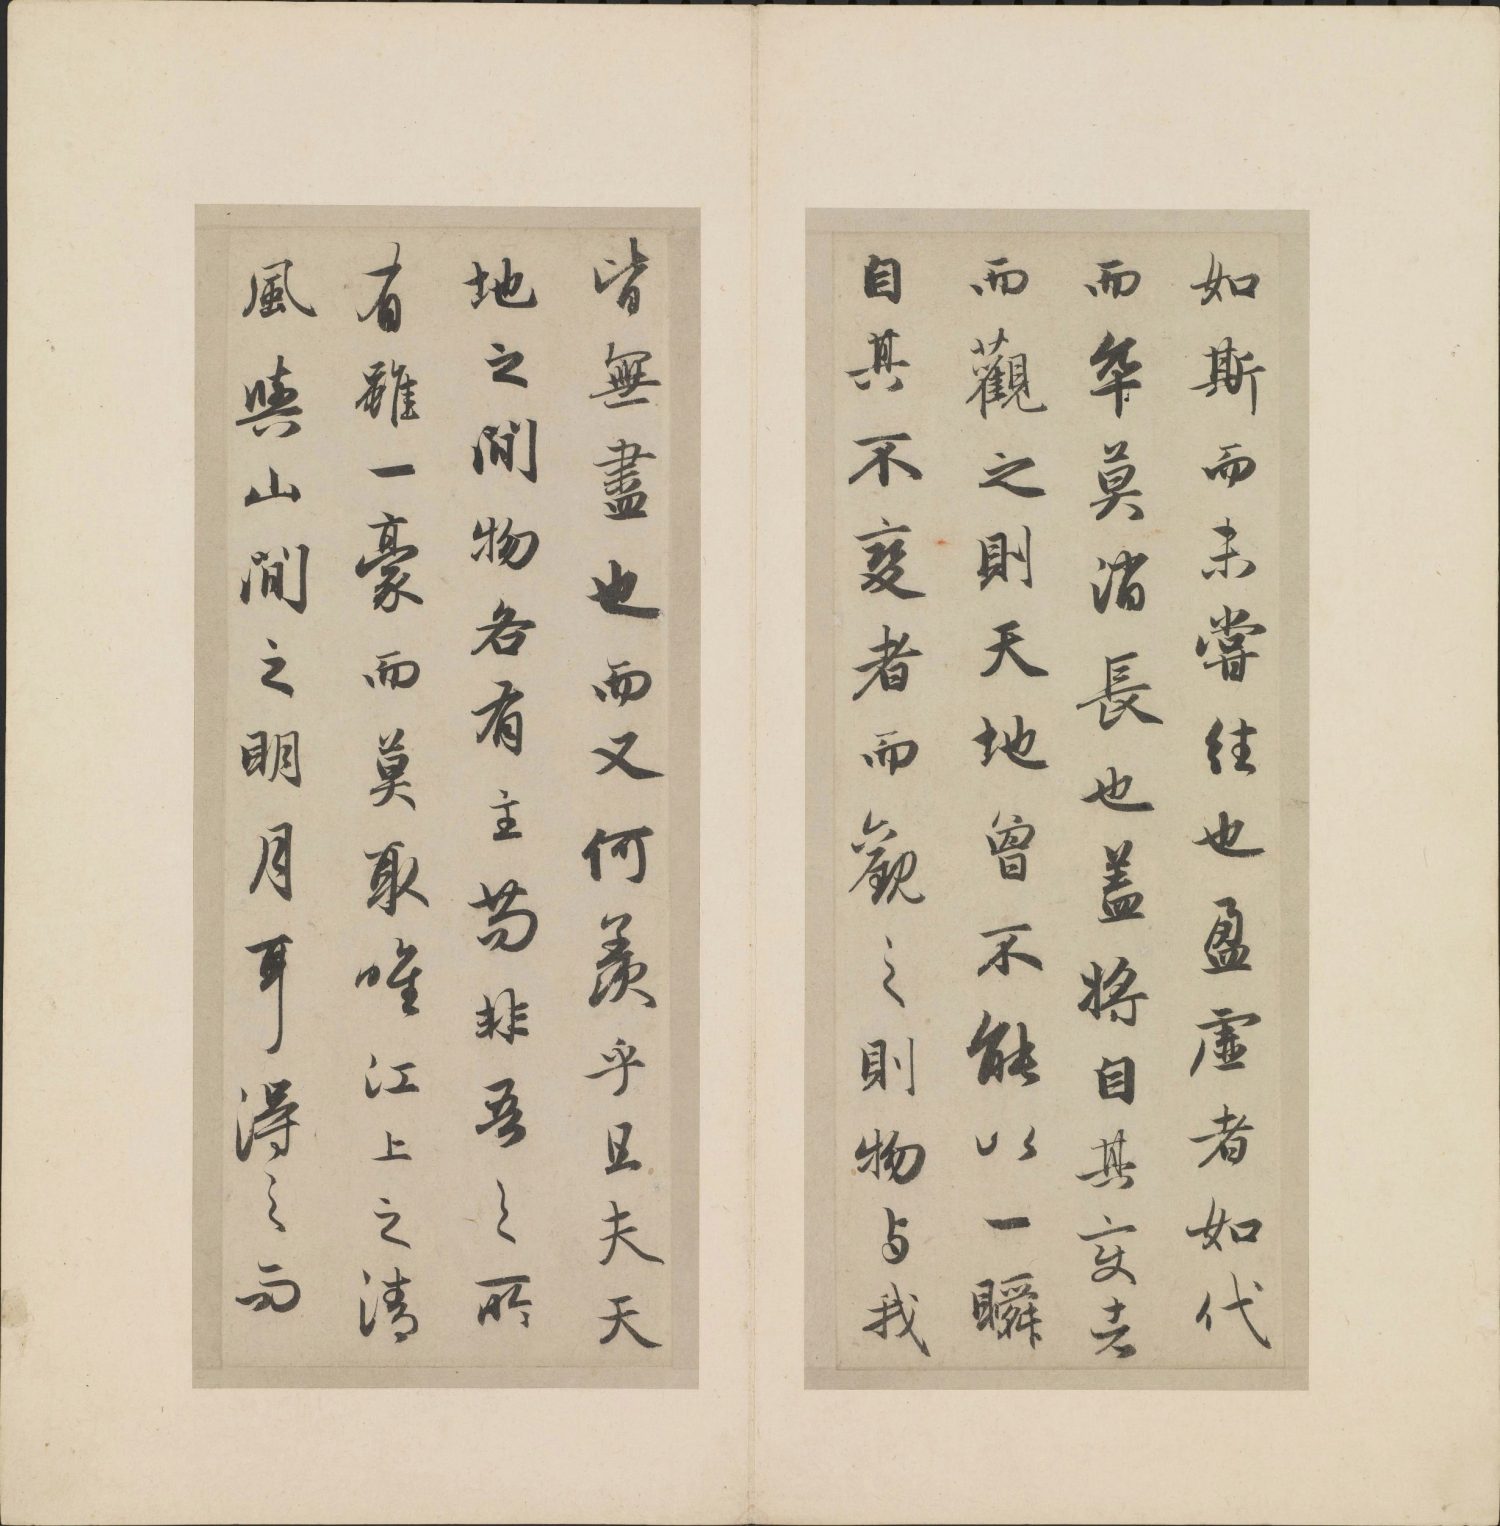 如斯而未嘗往也盈虛者如代
而卒莫消長也蓋將自其變者
而觀之則天地曾不能以一瞬
自其不變者而觀之則物与我
皆無盡也而又何羨乎且夫天
地之間物各有主苟非吾之所
有雖一豪而莫取唯江上之清
風與山間之明月耳得之而